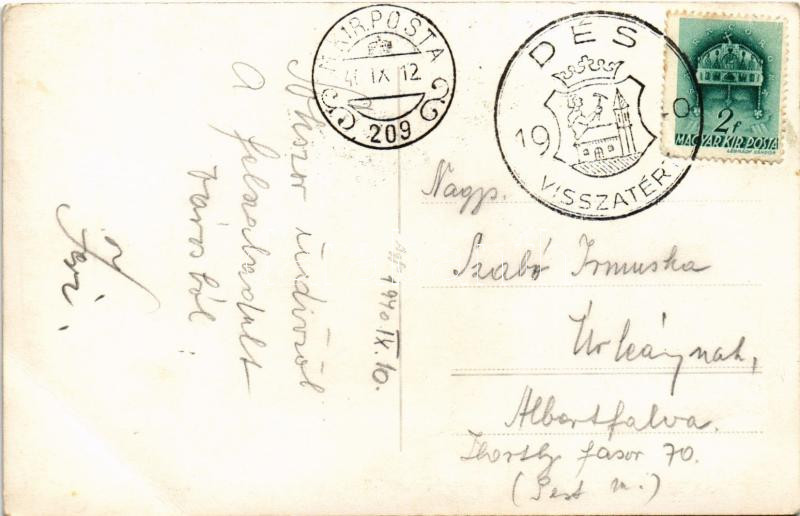 M.KIR.POSTA
40 IX 12
209
DÉS
1940
VISSZATÉRT
2f
MAGYAR KIR. POSTA
Sokszor üdvözöl
A felszabadult
városból
Jari.
1940 IX. 10.
Nagys.
Szabó Irmuska
Úrleánynak,
Albertfalva.
Horthy fasor 70.
(Pest m.)